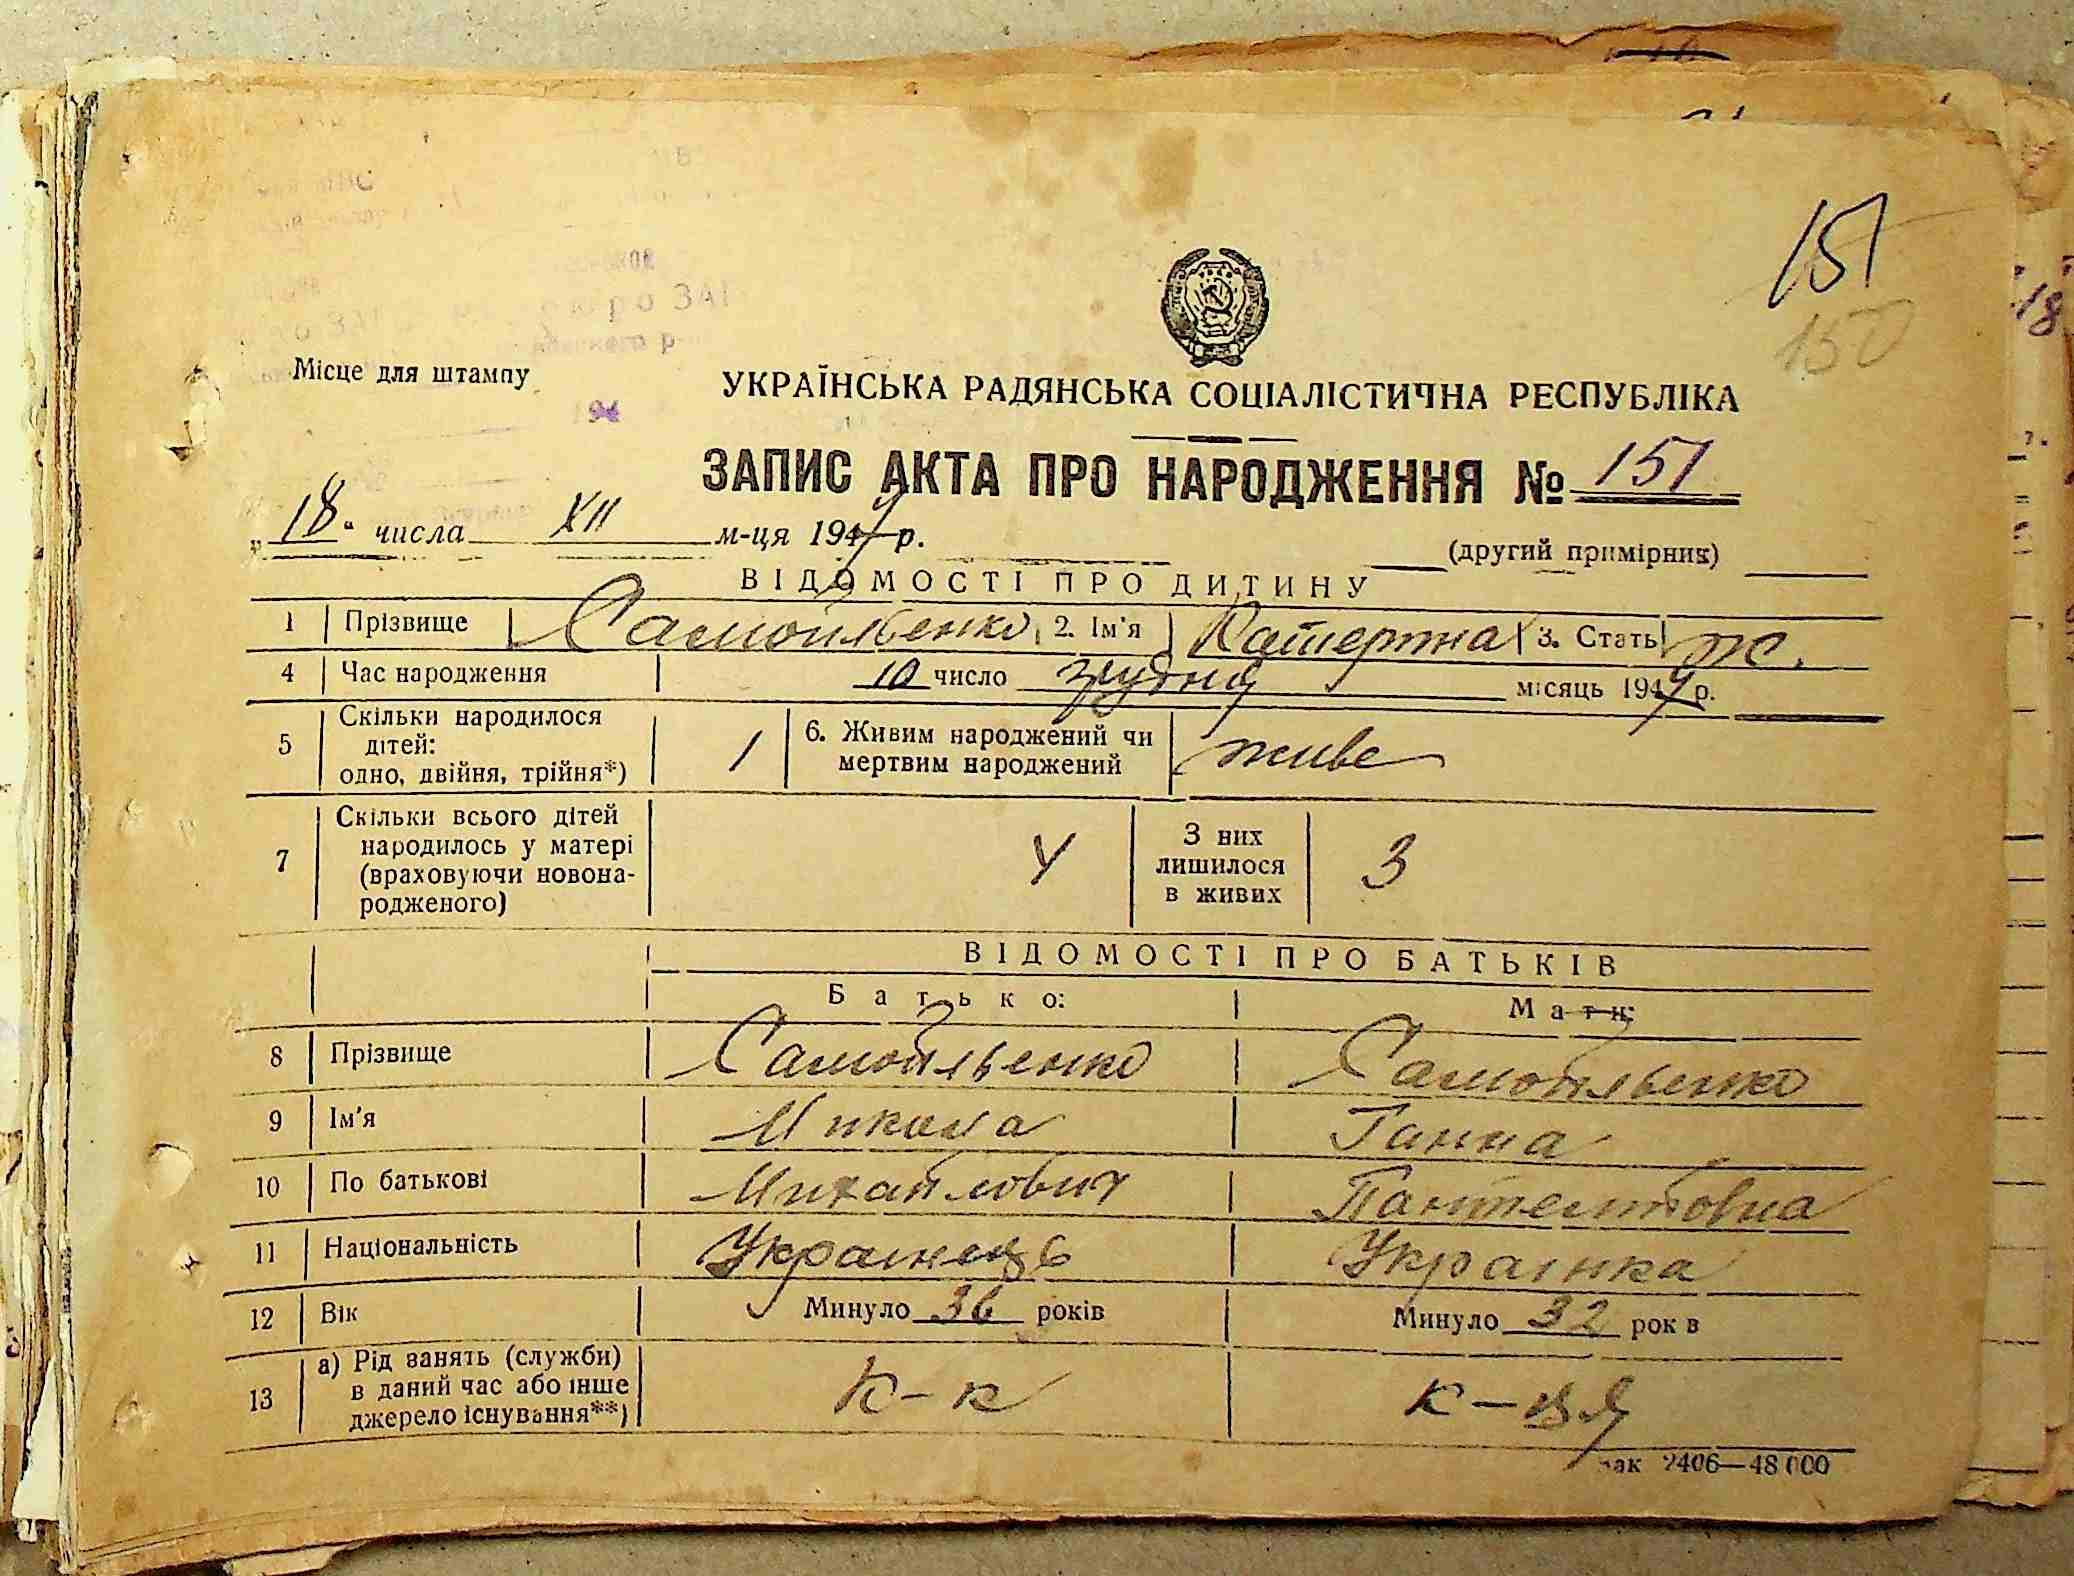 151
150
Місце для штампу
УКРАЇНСЬКА РАДЯНСЬКА СОЦІАЛІСТИЧНА РЕСПУБЛІКА
ЗАПИС АКТА ПРО НАРОДЖЕННЯ № 151
„18“ числа XII м-ця 1947 р.
(другий примірник)
ВІДОМОСТІ ПРО ДИТИНУ
1 Прізвище Самойленко 2. Ім'я Катерина 3. Стать ж.
4 Час народження 10 число грудня місяць 1947 р.
5 Скільки народилося дітей: одно, двійня, трійня*) 1 6. Живим народжений чи мертвим народжений живе
7 Скільки всього дітей народилось у матері (враховуючи новонародженого) 4 З них лишилося в живих 3
ВІДОМОСТІ ПРО БАТЬКІВ
Батько: Мати:
8 Прізвище Самойленко Самойленко
9 Ім'я Микола Ганна
10 По батькові Михайлович Пантелеївна
11 Національність Українець Українка
12 Вік Минуло 36 років Минуло 32 рок в
13 а) Рід занять (служби) в даний час або інше джерело існування**) к-к к-ця
зак 2406—48 000